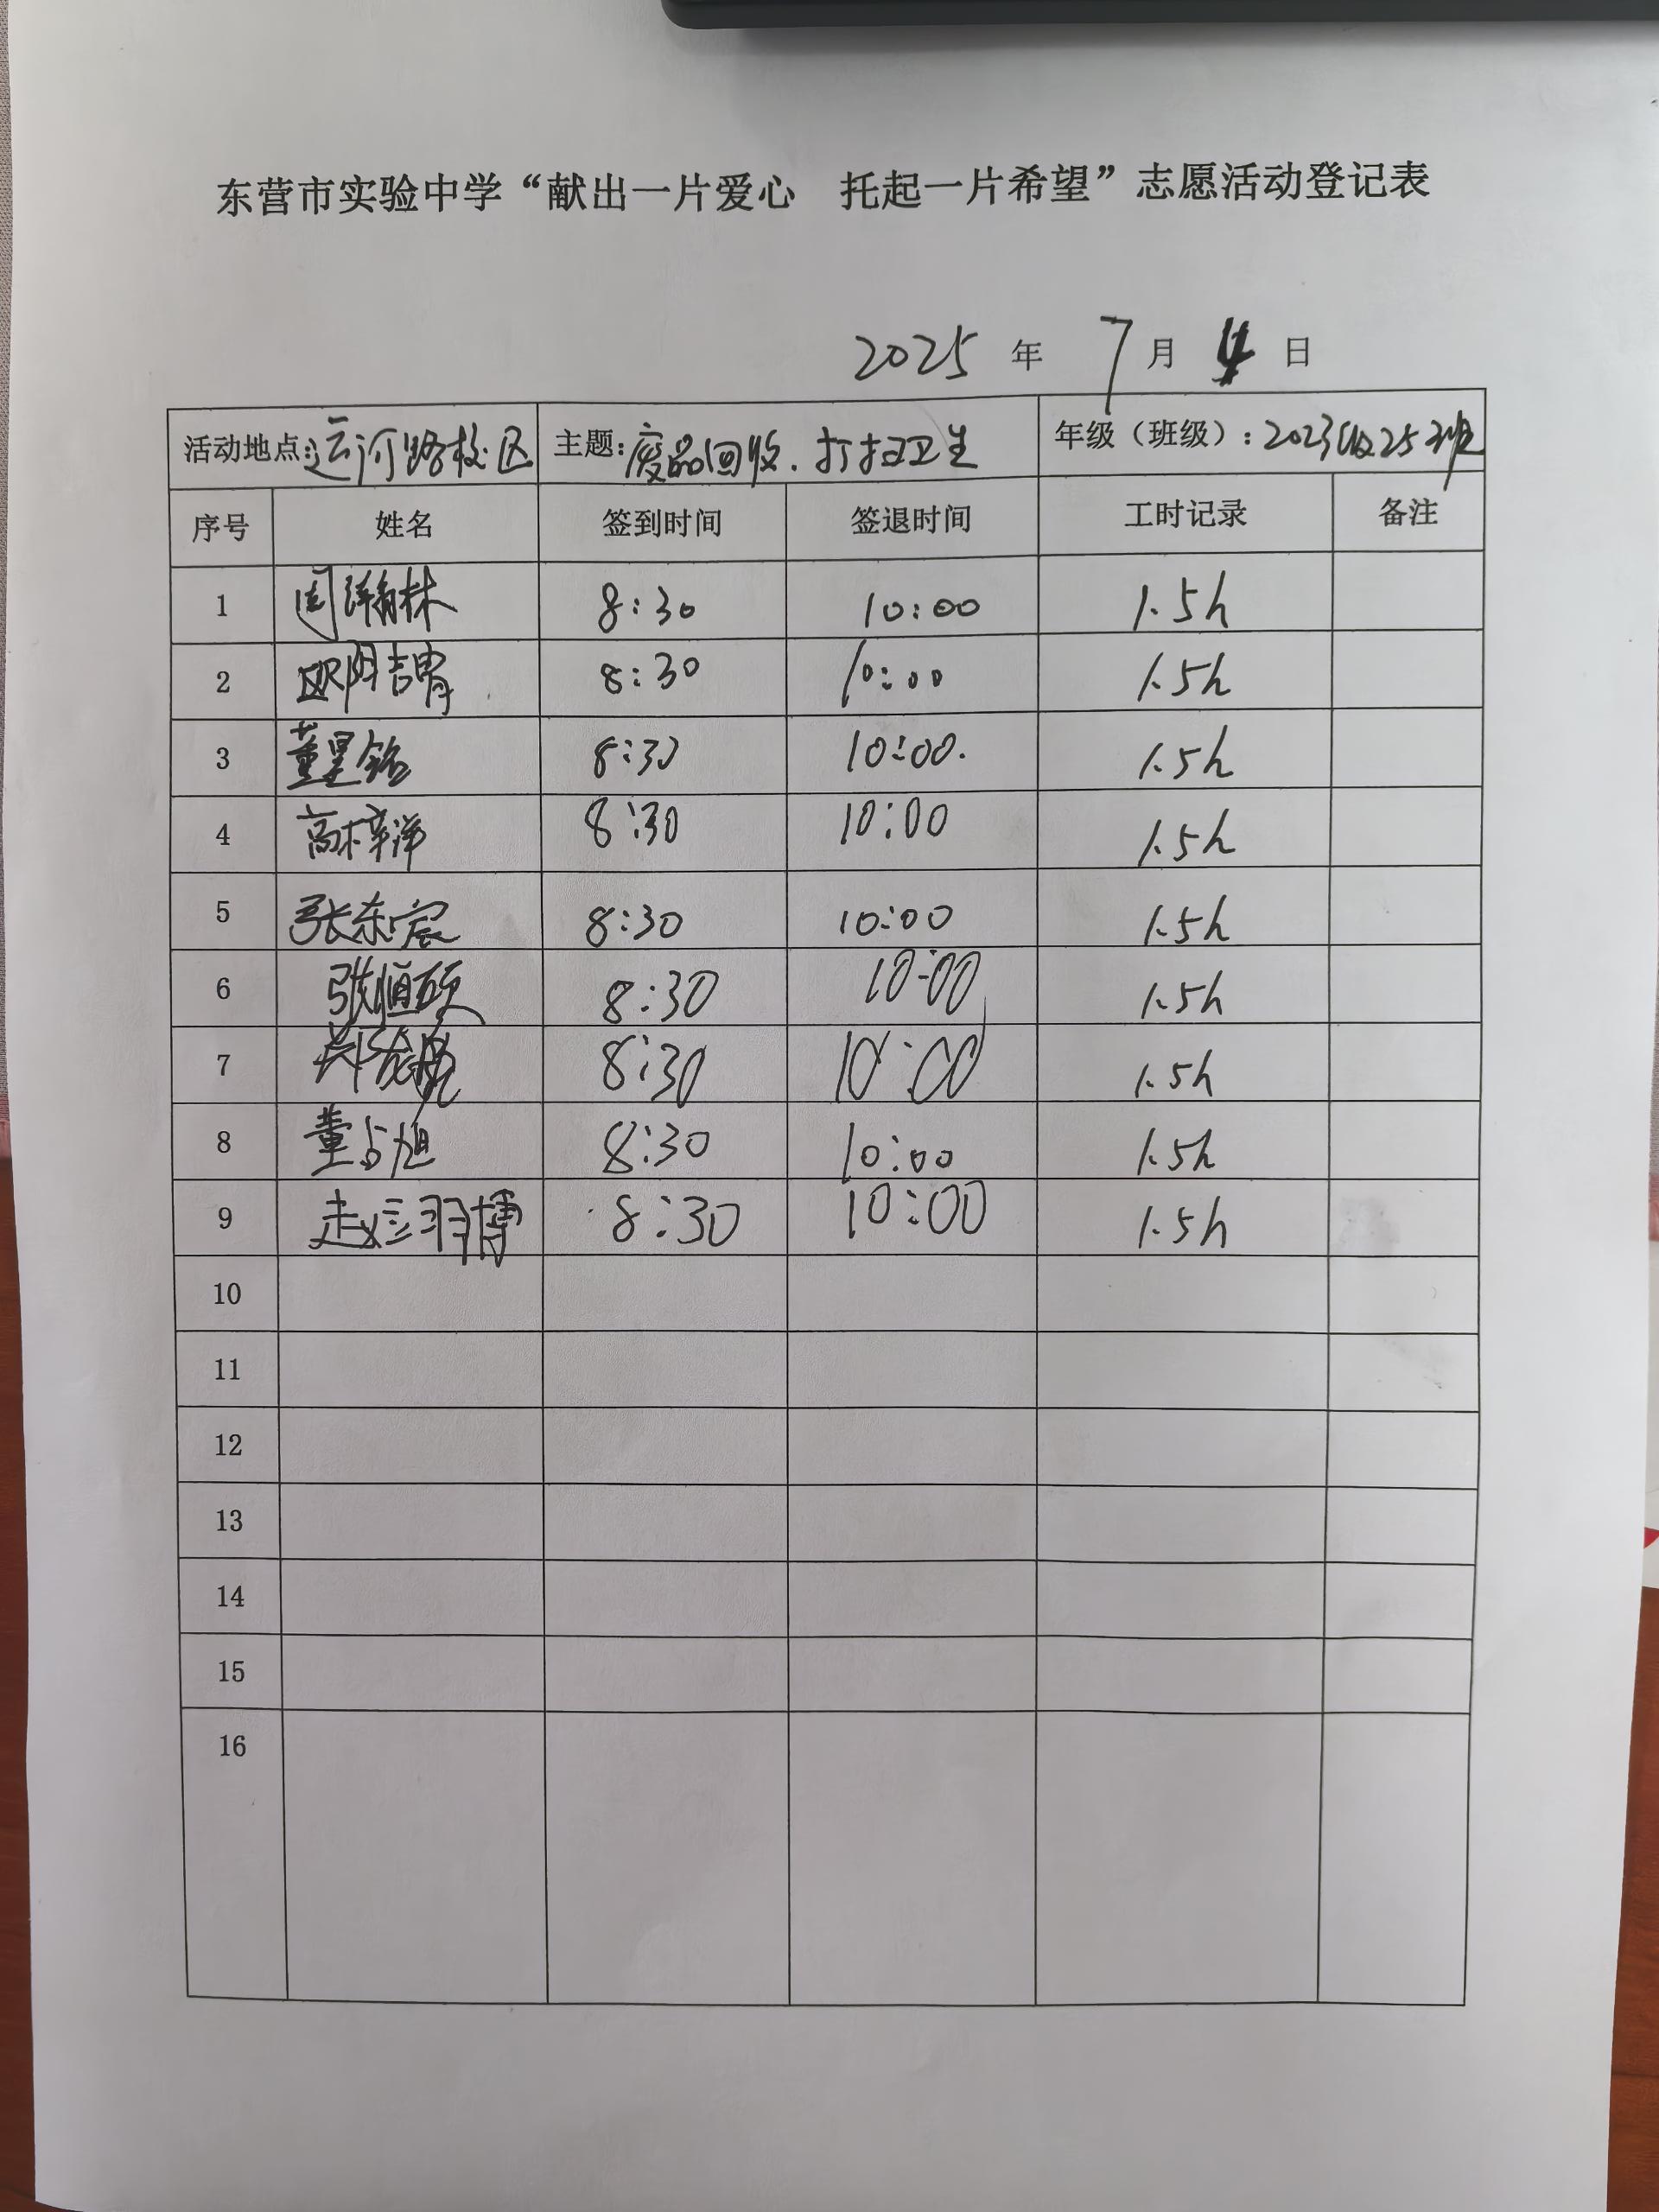 东营市实验中学“献出一片爱心 托起一片希望”志愿活动登记表
2025 年 7 月 4 日
活动地点:运河路校区 主题:废品回收、打扫卫生 年级（班级）:2023级25班
序号 姓名 签到时间 签退时间 工时记录 备注
1 周瀚林 8:30 10:00 1.5h
2 欧阳吉胄 8:30 10:00 1.5h
3 董星铭 8:30 10:00. 1.5h
4 高梓洋 8:30 10:00 1.5h
5 张东宸 8:30 10:00 1.5h
6 张恒硕 8:30 10:00 1.5h
7 8:30 10:00 1.5h
8 董占旭 8:30 10:00 1.5h
9 赵翊博 8:30 10:00 1.5h
10
11
12
13
14
15
16